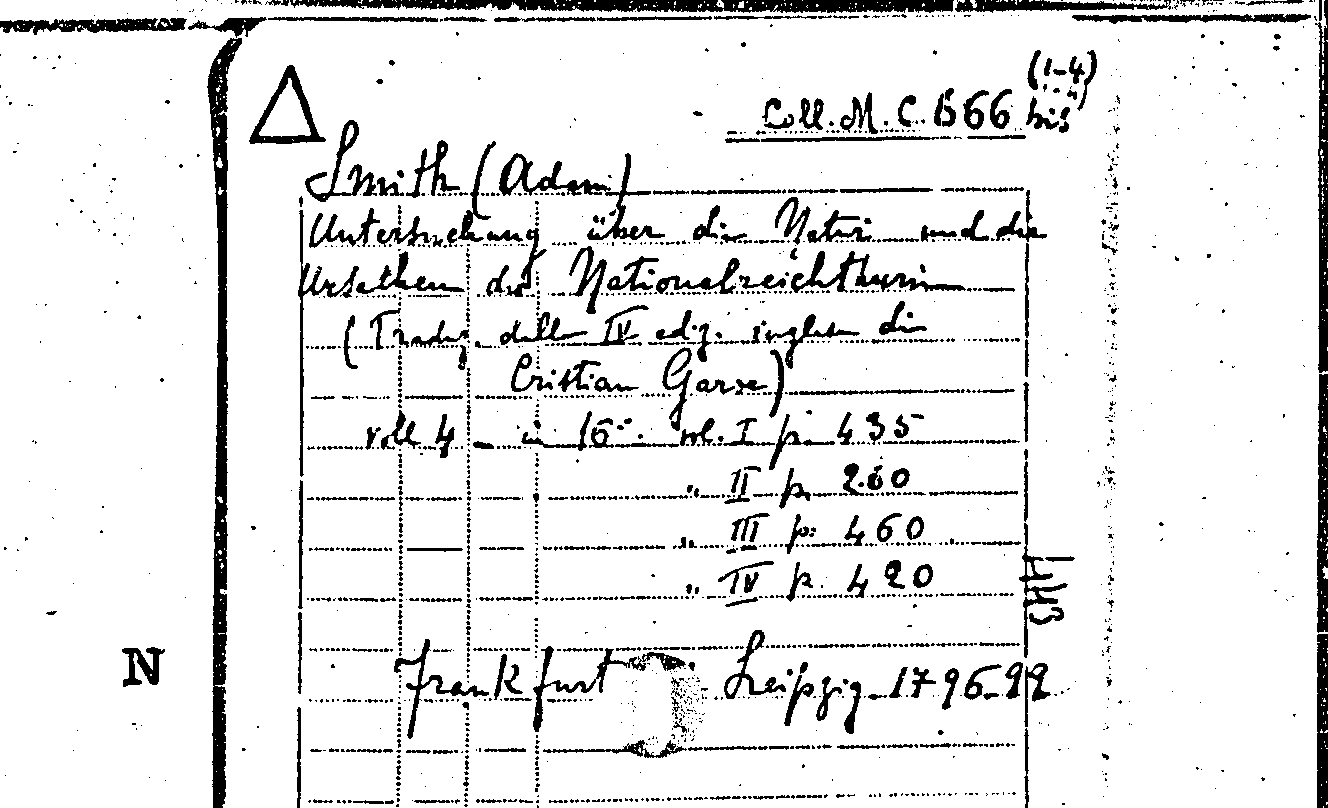 (1-4)
Coll. M. C. B 66 bis
Smith (Adam)
Untersuchung über die Natur und die
Ursachen des Nationalreichthum
(Traduz. dalla IV ediz. inglese di
Cristian Garve)
voll 4 - in 16°. vol. I p. 435
" II p. 260
" III p. 460
" IV p. 420
N
Frankfurt Leipzig - 1796-99